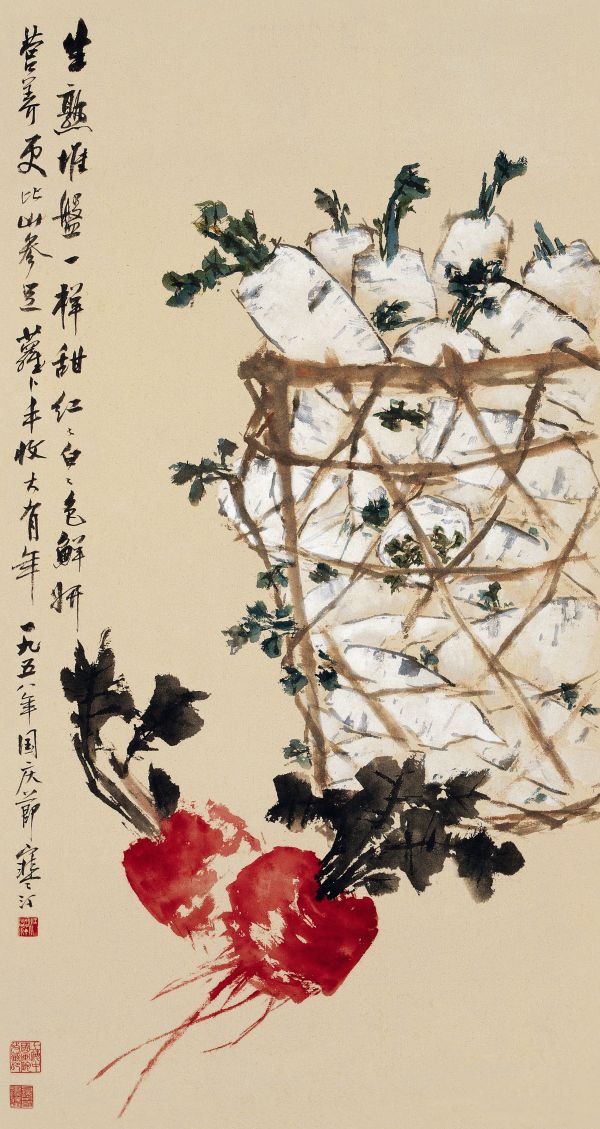 生熟堆盤一样甜红〻白〻色鮮妍
营养更比山参足蘿卜丰收大有年一九五八年国庆節寒汀